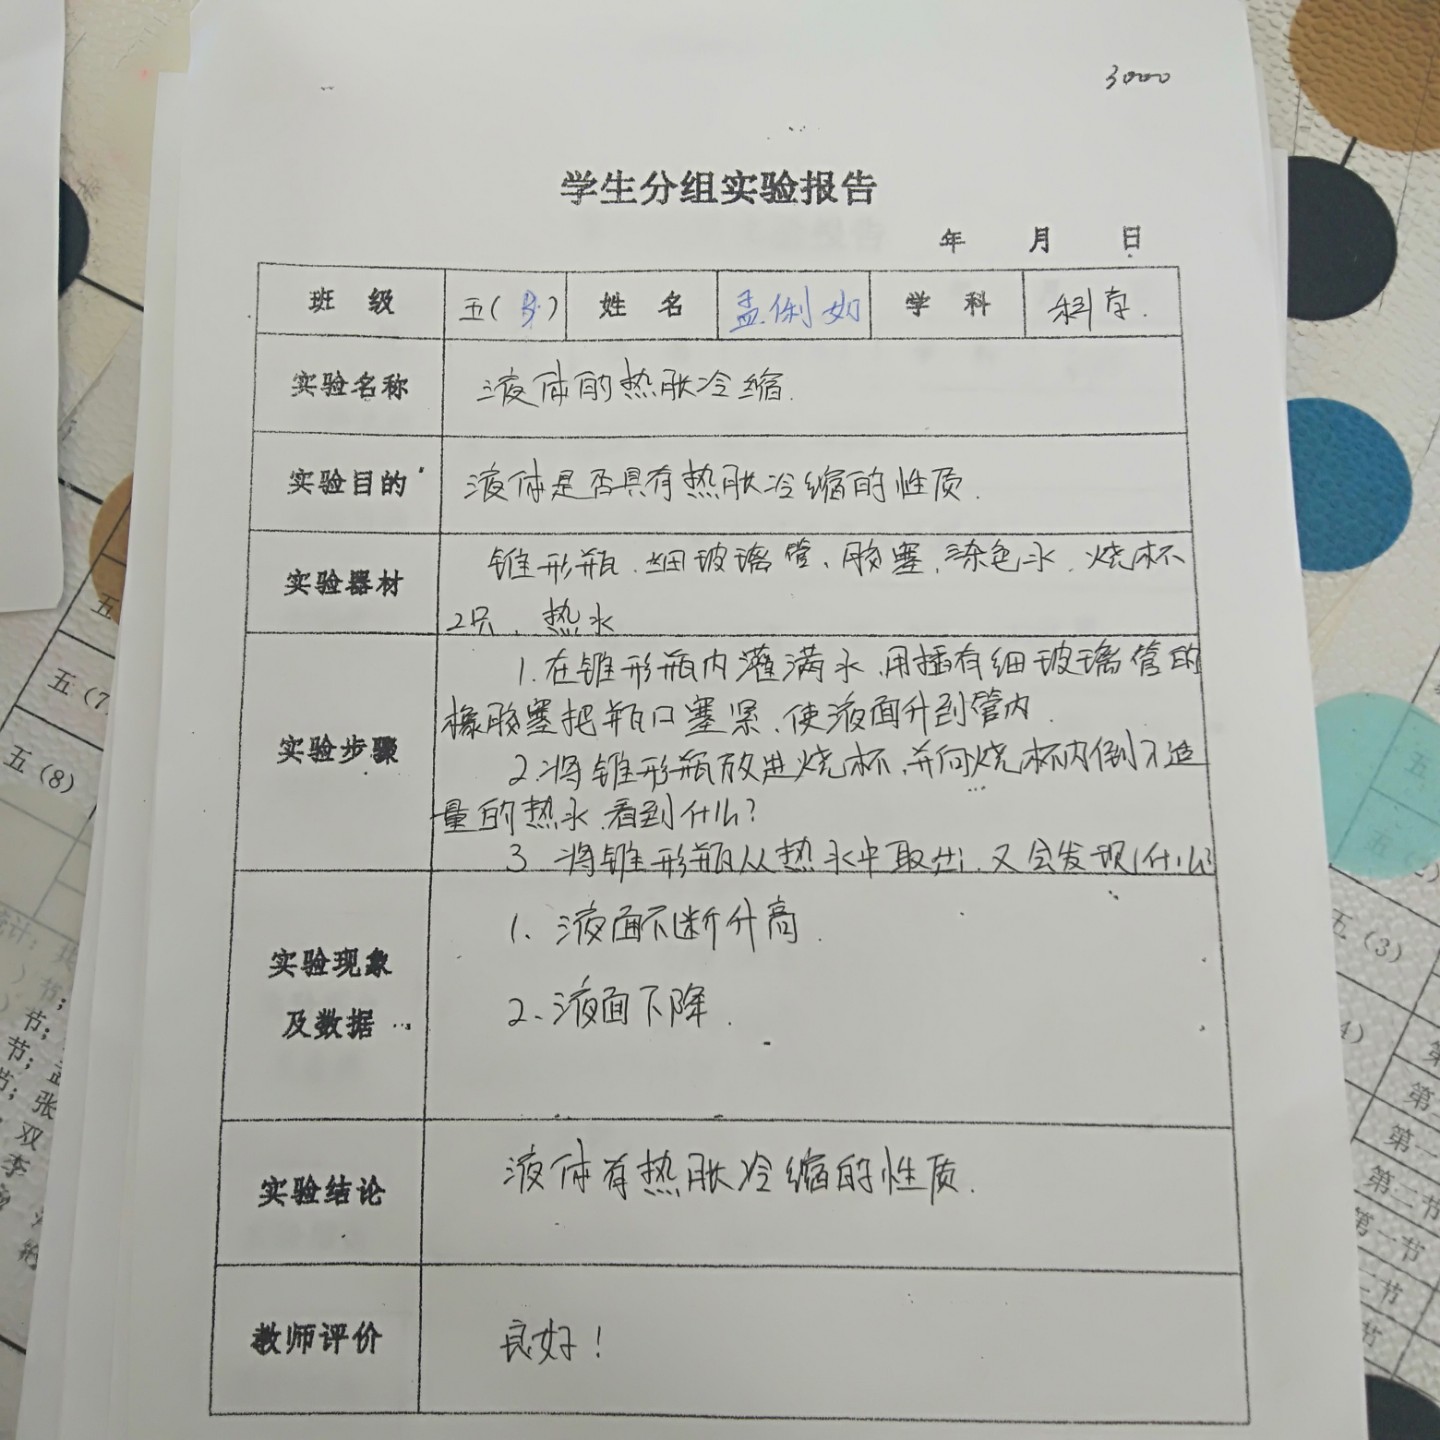 3000
学生分组实验报告
年 月 日
班 级 五( ) 姓 名 孟俐如 学 科 科学.
实验名称 液体的热胀冷缩.
实验目的 液体是否具有热胀冷缩的性质.
实验器材 锥形瓶、细玻璃管、胶塞、染色水、烧杯
2只、热水
1.在锥形瓶内灌满水,用插有细玻璃管的
橡胶塞把瓶口塞紧,使液面升到管内.
实验步骤
2.将锥形瓶放进烧杯,并向烧杯内倒入适
量的热水,看到什么?
3.将锥形瓶从热水中取出,又会发现什么?
实验现象
及数据
1、液面不断升高.
2、液面下降.
实验结论 液体有热胀冷缩的性质.
教师评价 良好!
五(7
五(8)
五(3)
第一节
第二节